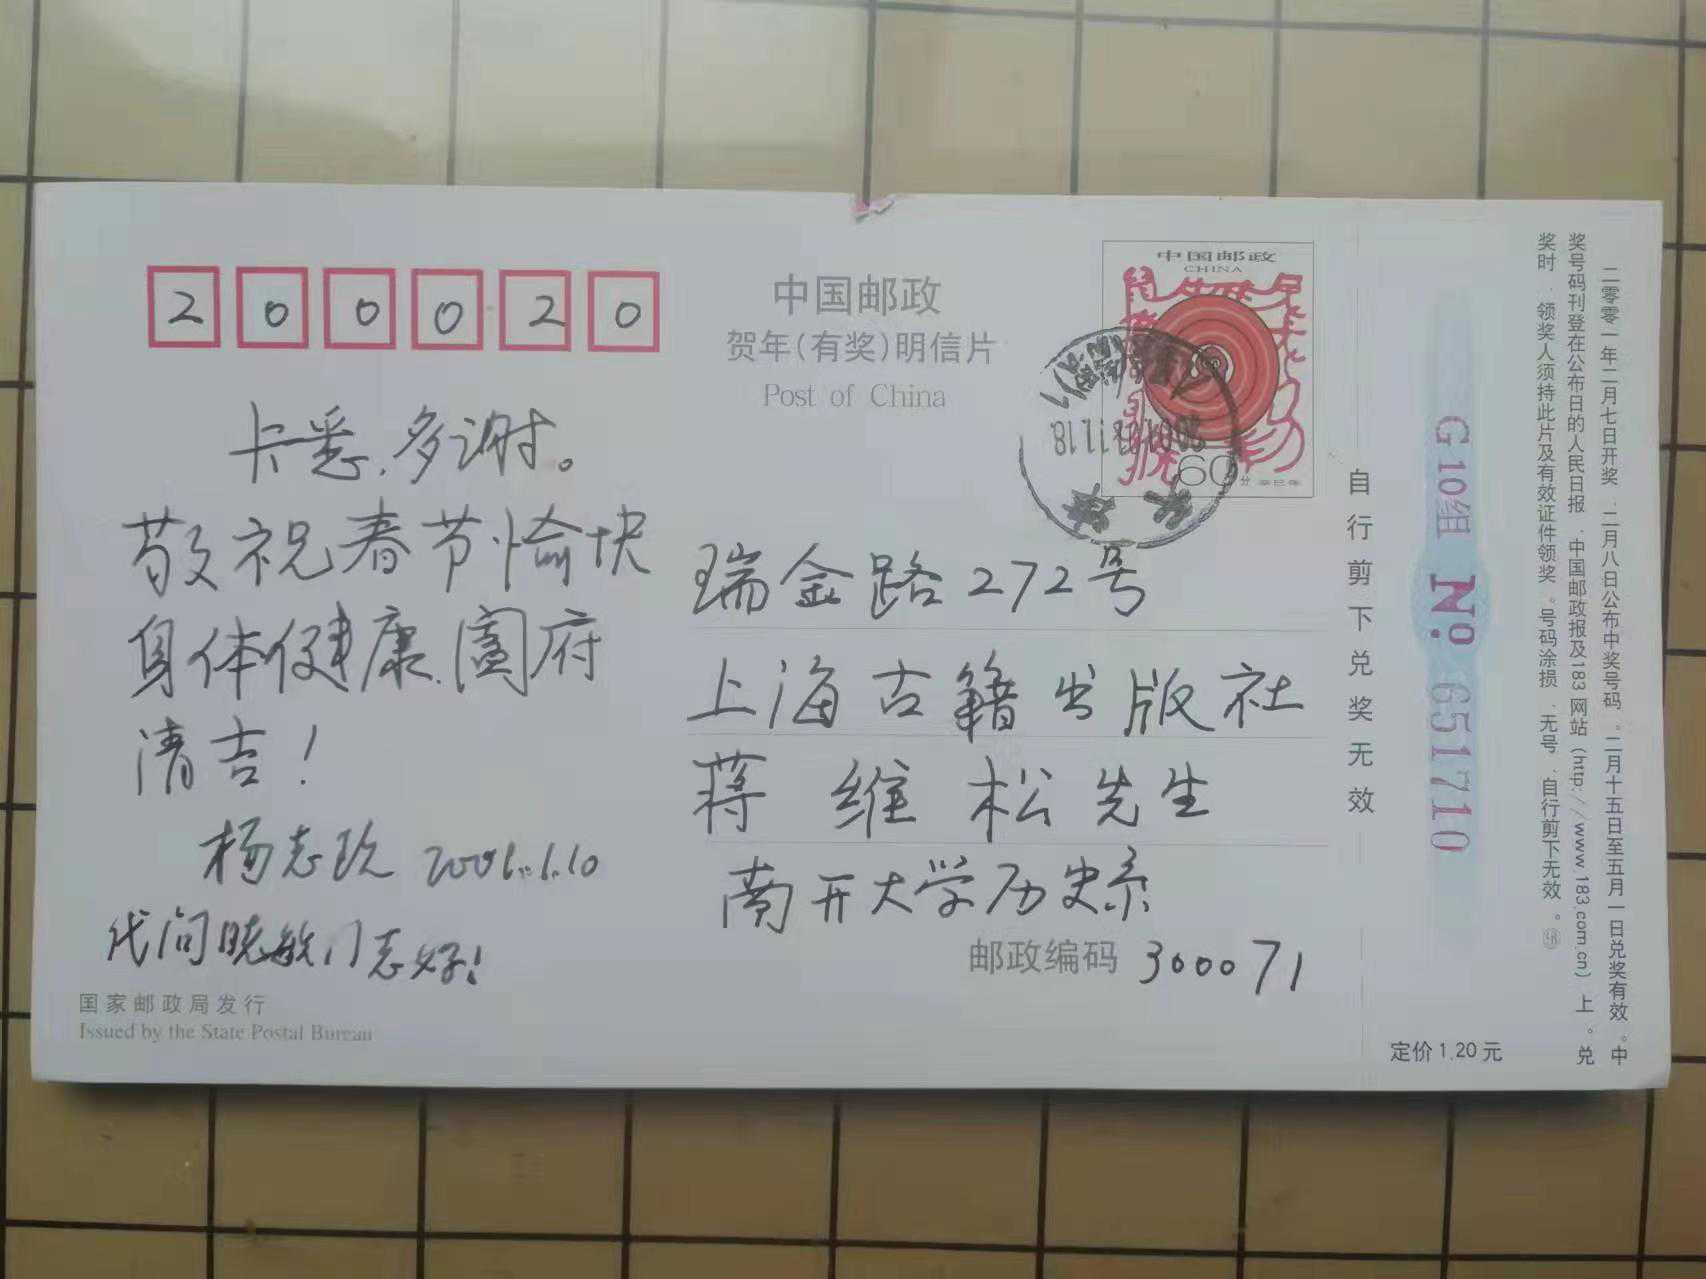 200020
中国邮政
贺年(有奖)明信片
Post of China
中国邮政
CHINA
60分
辛巳年
卡悉,多谢。
敬祝春节愉快
身体健康,阖府
清吉!
杨志玖 2001.1.10
代问晓敏同志好!
国家邮政局发行
Issued by the State Postal Bureau
瑞金路272号
上海古籍出版社
蒋维松先生
南开大学历史系
邮政编码 300071
自行剪下兑奖无效
G10组 No. 651710
二零零一年二月七日开奖.二月八日公布中奖号码。二月十五日至五月一日兑奖有效。中
奖号码刊登在公布日的人民日报.中国邮政报及183网站(http://www.183.com.cn)上。兑
奖时.领奖人须持此片及有效证件领奖。号码涂损.无号.自行剪下无效。
定价1.20元